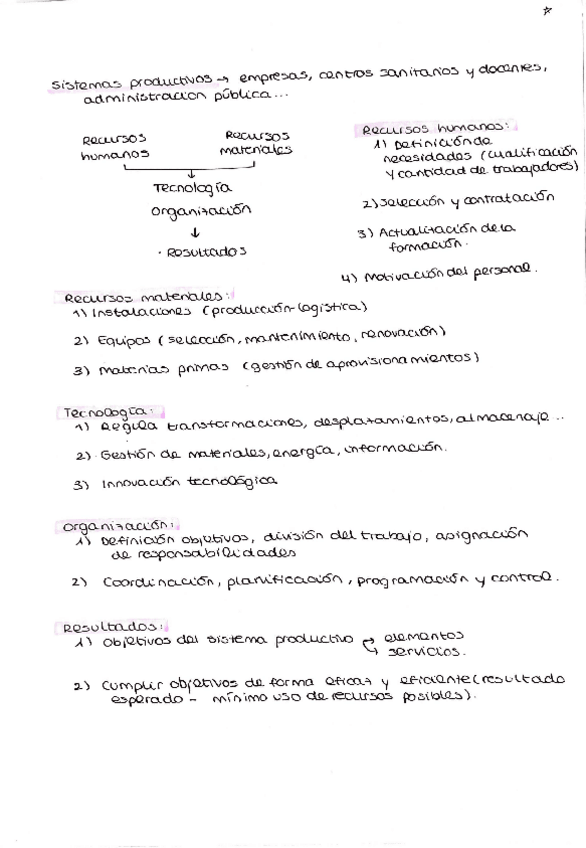 Sistemas productivos → empresas, centros sanitarios y docentes,
administración pública...
Recursos humanos
Recursos materiales
Tecnología
Organización
↓
· Resultados
Recursos humanos:
1) Definición de
necesidades (cualificación
y cantidad de trabajadores)
2) Selección y contratación
3) Actualización de la
formación.
4) Motivación del personal.
Recursos materiales:
1) Instalaciones (producción-logística)
2) Equipos (selección, mantenimiento, renovación)
3) Materias primas (gestión de aprovisionamientos)
Tecnología:
1) Regula transformaciones, desplazamientos, almacenaje..
2) Gestión de materiales, energía, información.
3) Innovación tecnológica
Organización:
1) Definición objetivos, división del trabajo, asignación
de responsabilidades
2) Coordinación, planificación, programación y control.
Resultados:
1) Objetivos del sistema productivo → elementos
→ servicios.
2) Cumplir objetivos de forma eficaz y eficiente (resultado
esperado - mínimo uso de recursos posibles).